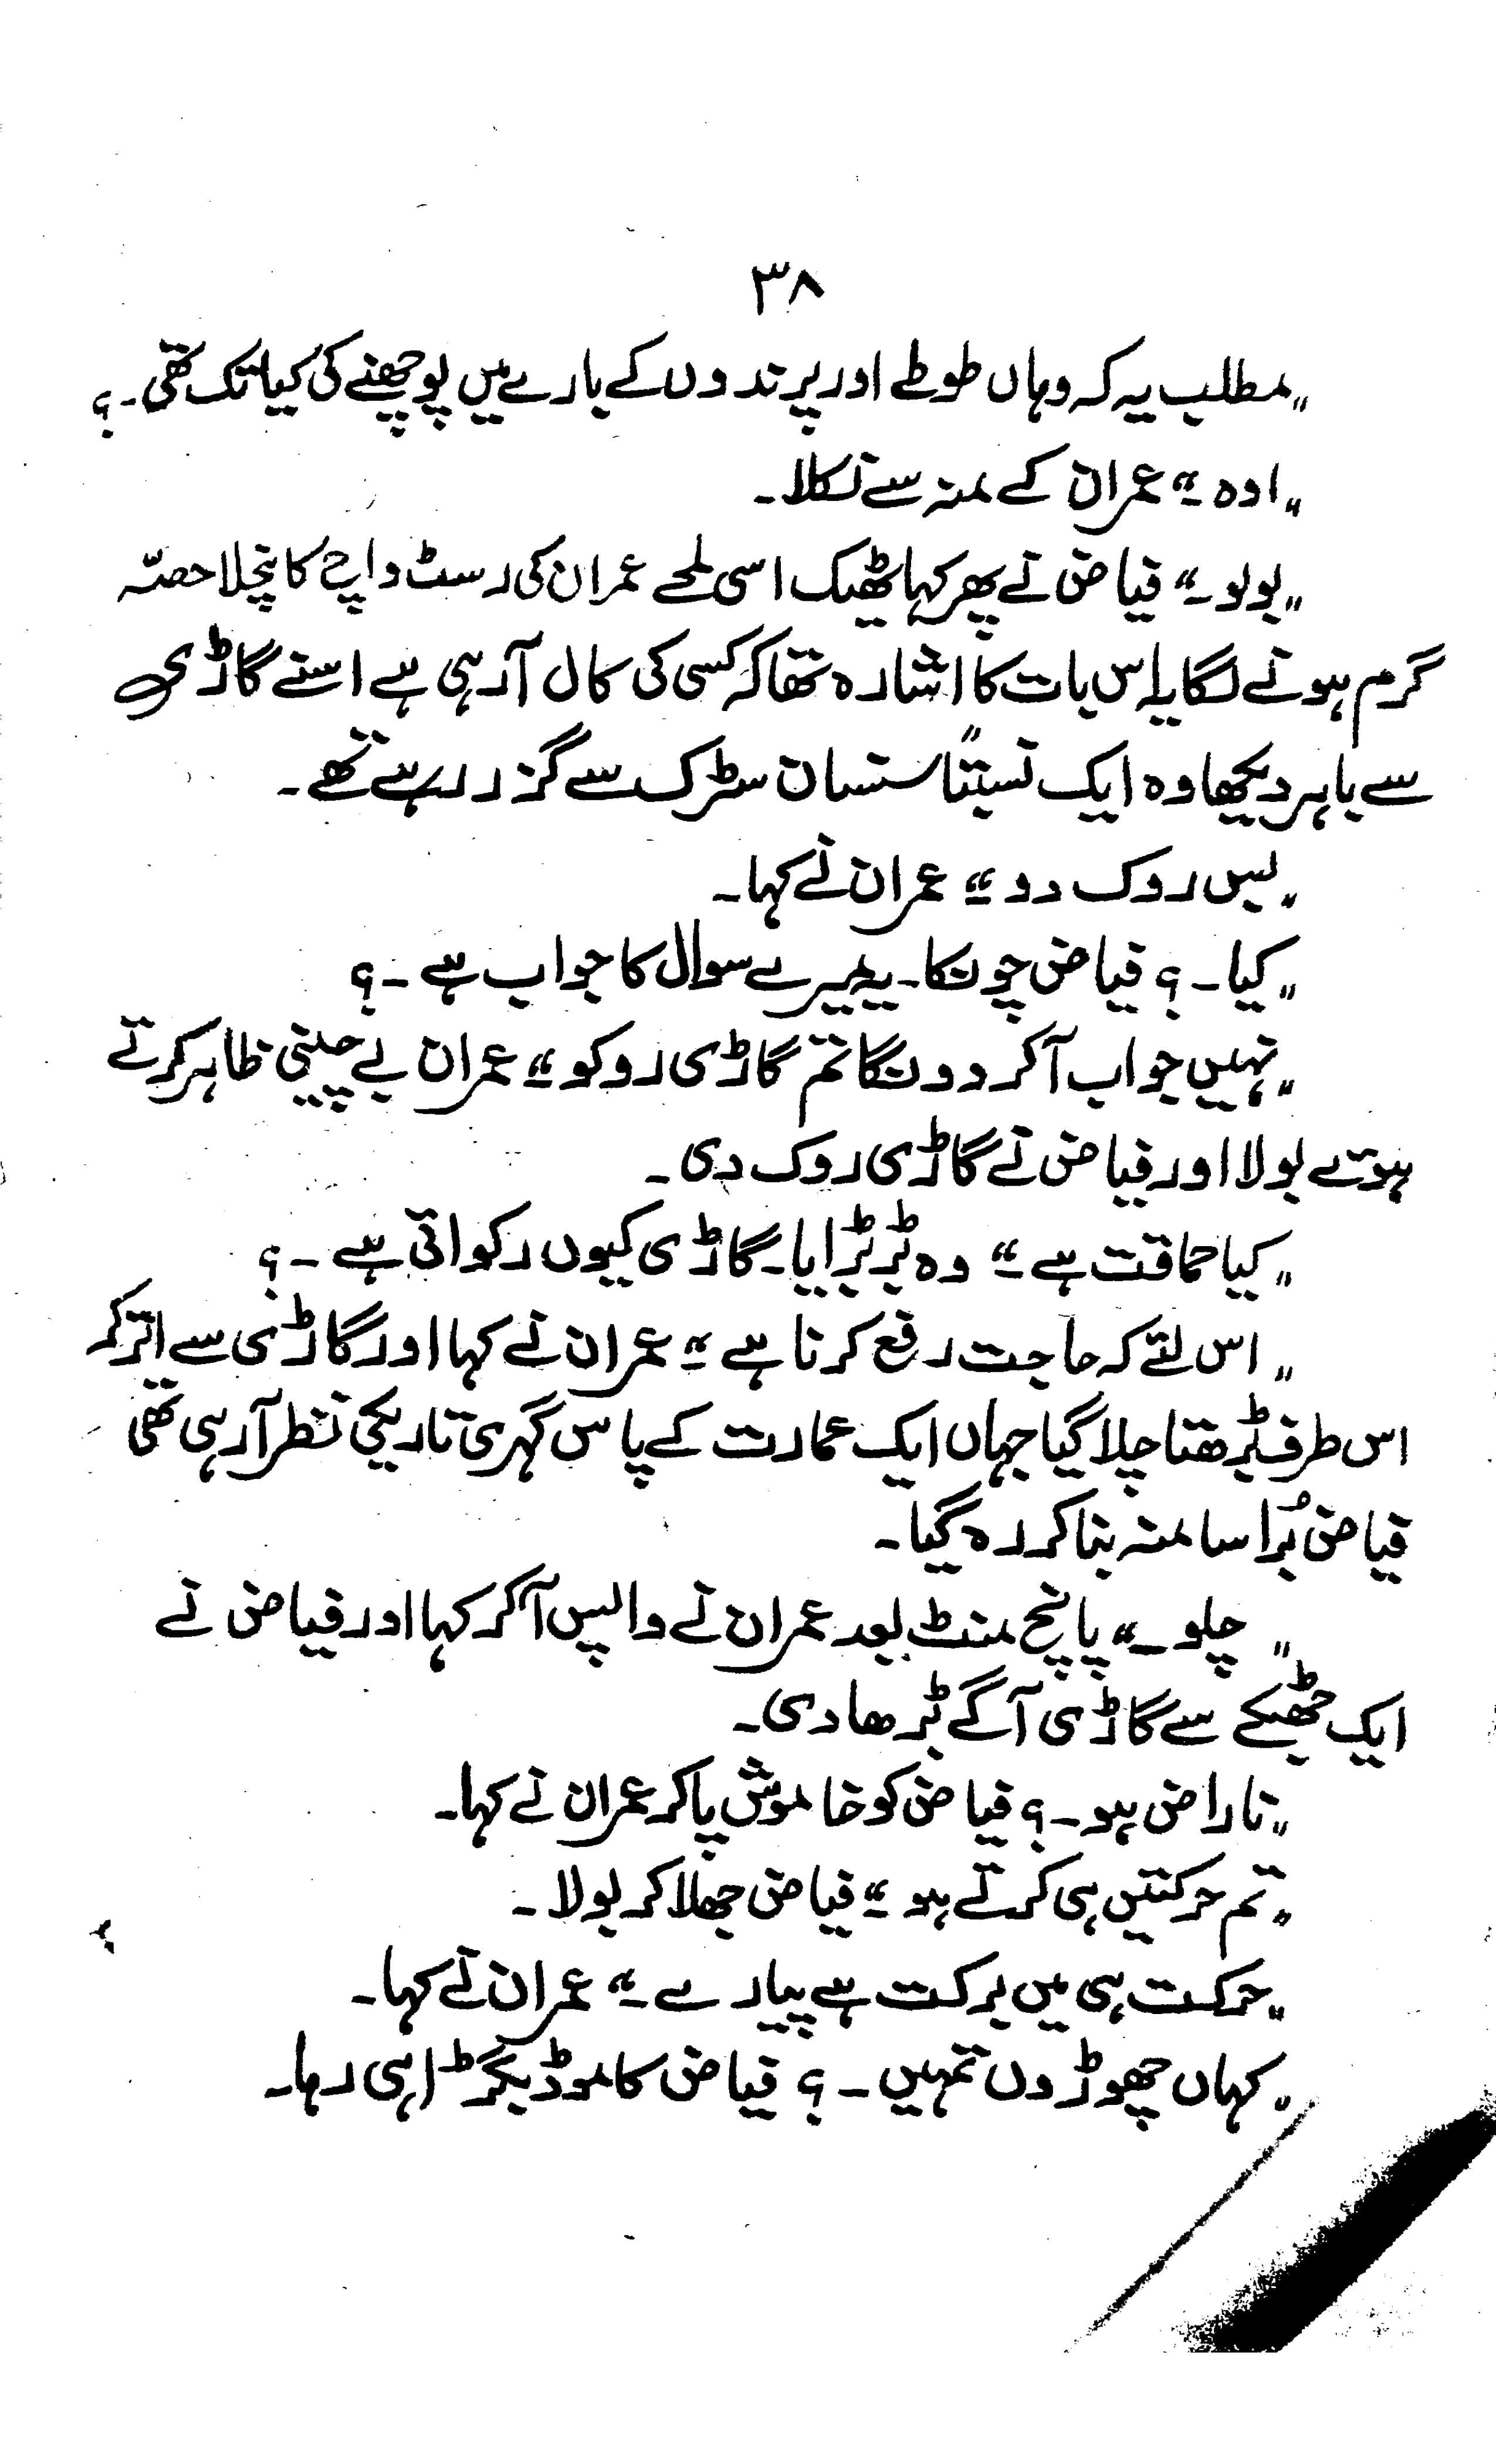 ۳۸
"مطلب یہ کہ وہاں طوطے اور پرندوں کے بارے میں پوچھنے کی کیا تک تھی۔؟
"اوہ۔" عمران کے منہ سے نکلا۔
"بولو۔" فیاض نے پھر کہا ٹھیک اسی لمحے عمران کی رسٹ واچ کا نچلا حصّہ
گرم ہونے لگا یہ اس بات کا اشارہ تھا کہ کسی کی کال آرہی ہے اسنے گاڑی
سے باہر دیکھا وہ ایک نسبتاً سنسان سٹرک سے گزر رہے تھے۔
"بس روک دو۔" عمران نے کہا۔
"کیا۔؟ فیاض چونکا۔ یہ میرے سوال کا جواب ہے۔؟
"نہیں جواب آکر دونگا تم گاڑی روکو۔" عمران بے چینی ظاہر کرتے
ہوتے بولا اور فیاض نے گاڑی روک دی۔
"کیا حماقت ہے۔" وہ بڑبڑایا۔ گاڑی کیوں رکوائی ہے۔؟
"اس لئے کہ حاجت رفع کرنا ہے۔" عمران نے کہا اور گاڑی سے اتر کر
اس طرف بڑھتا چلا گیا جہاں ایک عمارت کے پاس گہری تاریکی نظر آرہی تھی
فیاض بُرا سا منہ بنا کر رہ گیا۔
"چلو۔" پانچ منٹ بعد عمران نے واپس آکر کہا اور فیاض نے
ایک جھٹکے سے گاڑی آگے بڑھا دی۔
"ناراض ہو۔؟ فیاض کو خاموش پا کر عمران نے کہا۔
"تم حرکتیں ہی کرتے ہو۔" فیاض جھلا کر بولا۔
"حرکت ہی میں برکت ہے پیارے۔" عمران نے کہا۔
"کہاں چھوڑوں تمہیں۔؟ فیاض کا موڈ بگڑا ہی رہا۔